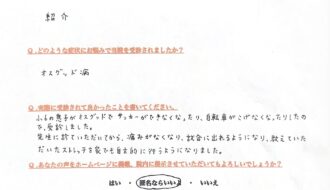 紹介
Q.どのような症状にお悩みで当院を受診されましたか？
オスグッド病
Q.実際に受診されて良かったことを書いてください。
ふたりの息子がオスグッドでサッカーができなくなったり、自転車がこげなくなったりしたの
で、受診しました。
先生に診ていただいてから、痛みがなくなり、試合に出れるようになり、教えていた
だいたストレッチを家でも自主的に行うようになりました。
Q.あなたの声をホームページに掲載、院内に掲示させていただいてもよろしいでしょうか？
はい ・ 匿名ならいい ・ いいえ